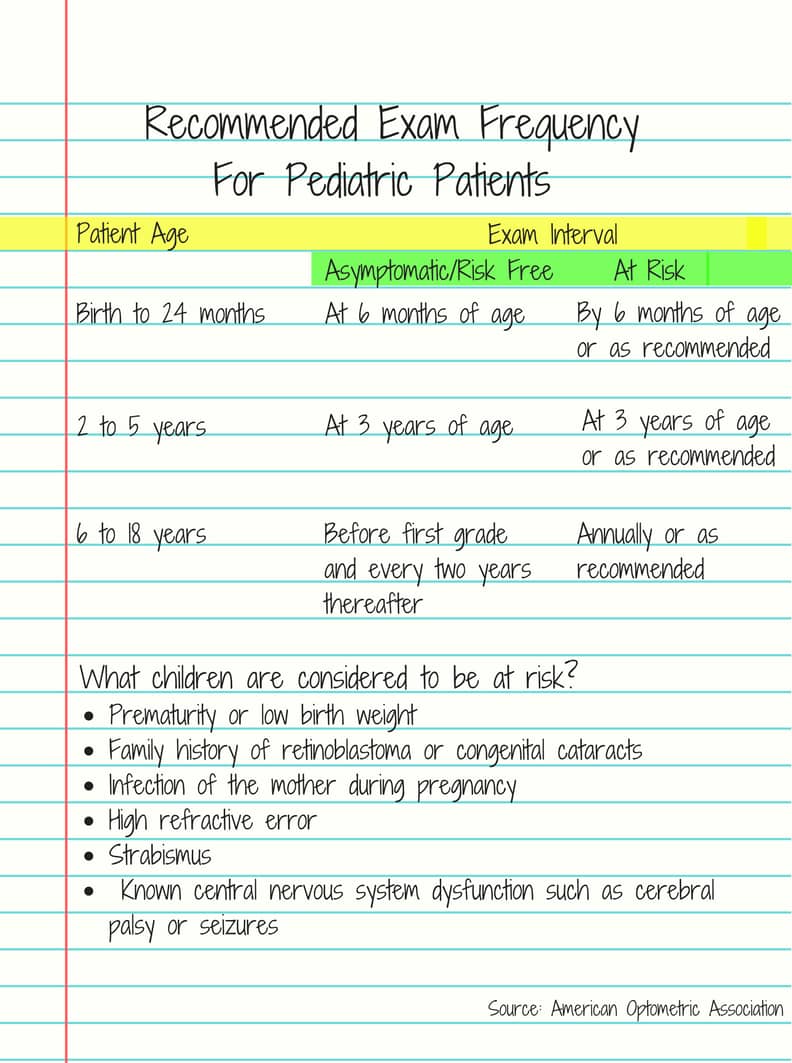 Recommended Exam Frequency
For Pediatric Patients
Patient Age Exam Interval
Asymptomatic/Risk Free At Risk
Birth to 24 months At 6 months of age By 6 months of age
or as recommended
2 to 5 years At 3 years of age At 3 years of age
or as recommended
6 to 18 years Before first grade Annually or as
and every two years recommended
thereafter
What children are considered to be at risk?
• Prematurity or low birth weight
• Family history of retinoblastoma or congenital cataracts
• Infection of the mother during pregnancy
• High refractive error
• Strabismus
• Known central nervous system dysfunction such as cerebral
palsy or seizures
Source: American Optometric Association